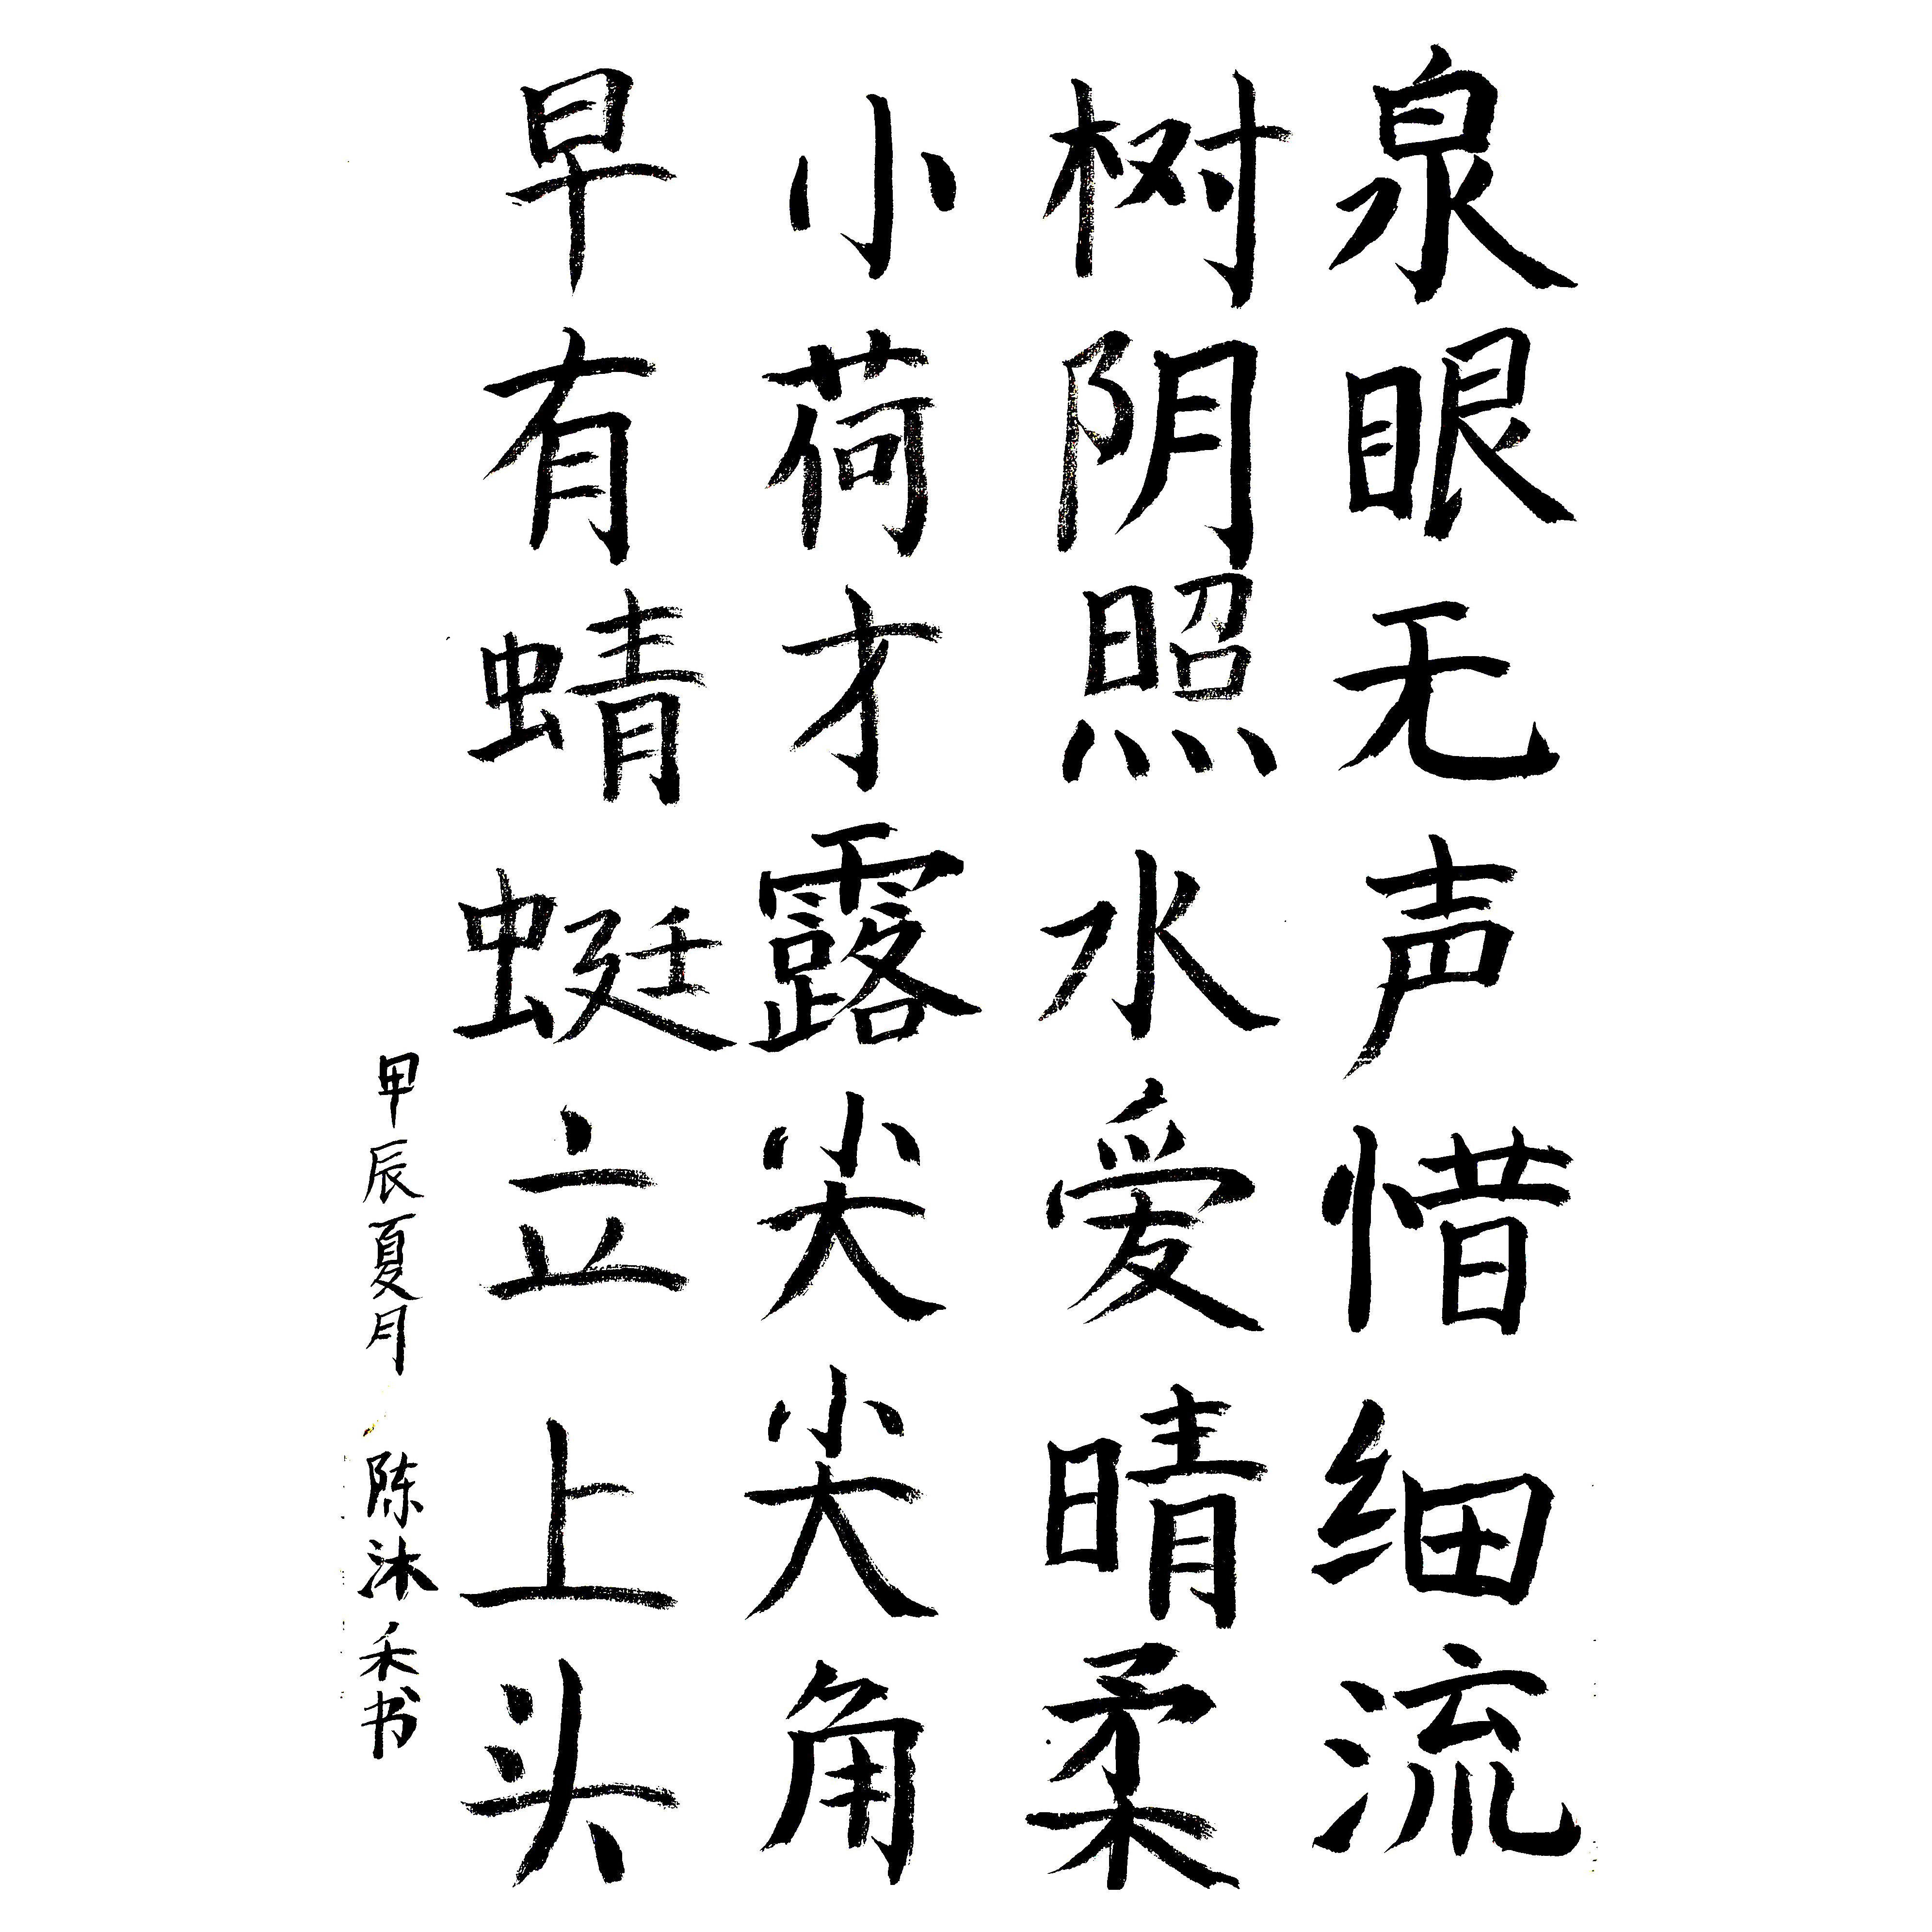 泉眼无声惜细流
树阴照水爱晴柔
小荷才露尖尖角
早有蜻蜓立上头
甲辰夏月 陈沐禾书